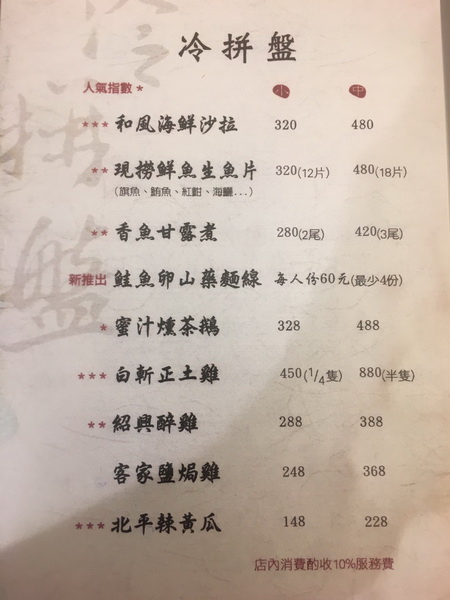 冷拼盤
人氣指數★ 小 中
★★★ 和風海鮮沙拉 320 480
★★ 現撈鮮魚生魚片 320(12片) 480(18片)
(旗魚、鮪魚、紅魽、海鱺...)
★★ 香魚甘露煮 280(2尾) 420(3尾)
新推出 鮭魚卵山藥麵線 每人份60元(最少4份)
★ 蜜汁燻茶鵝 328 488
★★★ 白斬正土雞 450(1/4隻) 880(半隻)
★★ 紹興醉雞 288 388
客家鹽焗雞 248 368
★★★ 北平辣黃瓜 148 228
店內消費酌收10%服務費